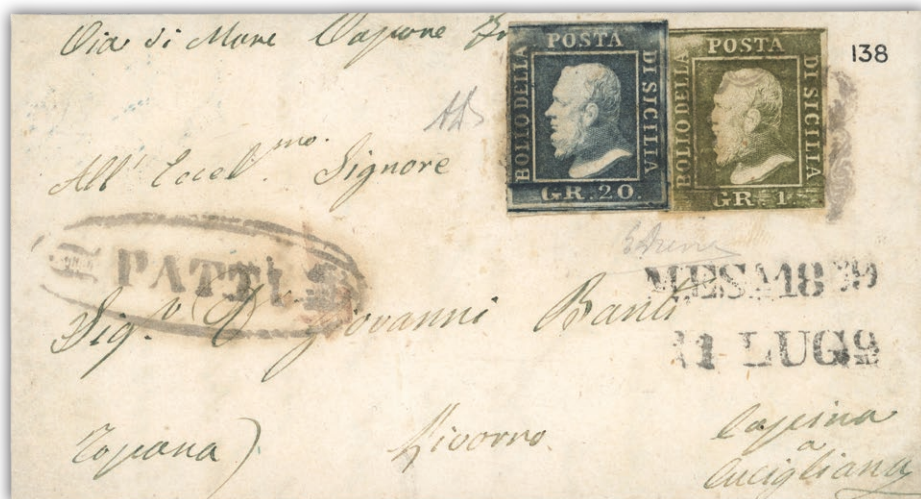 Via di Mare Vapore
BOLLO DELLA POSTA DI SICILIA
GR. 20.
BOLLO DELLA POSTA DI SICILIA
GR. 1.
138
All' Eccel.mo. Signore
PATTI
MES. 1859
11 LUG
Sig.r D Giovanni Banti
Toscana)
Livorno
Cascina
a
Lucigliana